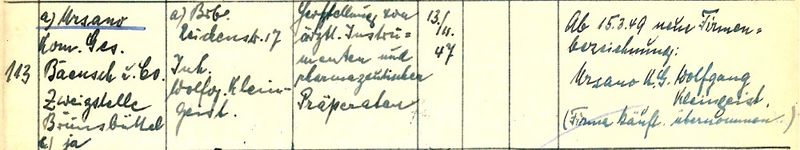 a) Ursano
Kom. Ges.
113 Baensch u. Co.
Zweigstelle
Brunsbüttel
c) ja
a) Brb.
17
Inh.
Wolfg. Klein-
geist.
Herstellung von
ärztl. Instru-
menten und
pharmazeutischer
Präperaten
13./
11.
47
Ab 15.3.49 neue Firmen-
bezeichnung:
Ursano K.G. Wolfgang
Kleingeist.
(Firma käufl. übernommen.)